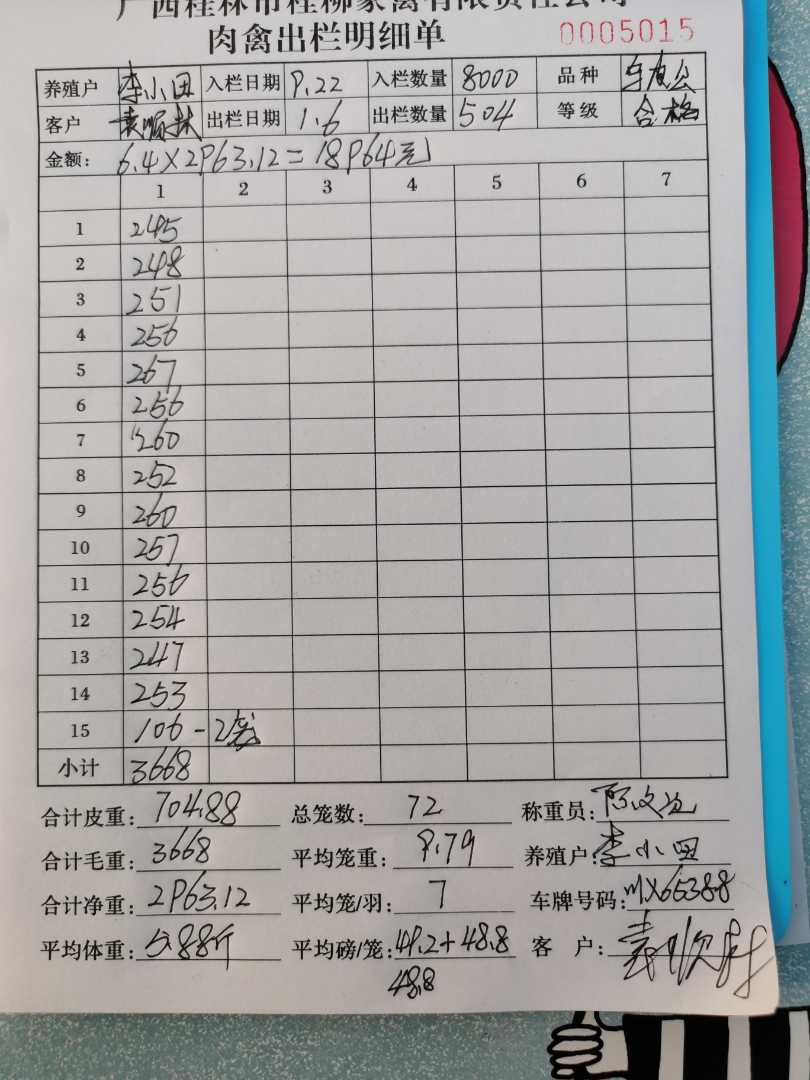 广西桂林市桂柳家禽有限责任公司
肉禽出栏明细单 0005015
养殖户 李小田 入栏日期 9.22 入栏数量 8000 品种
客户 出栏日期 1.6 出栏数量 504 等级 合格
金额: 6.4×2963.12=18964元
1 2 3 4 5 6 7
1 245
2 248
3 251
4 256
5 267
6 256
7 260
8 252
9 260
10 257
11 256
12 254
13 247
14 253
15 106-2笼
小计 3668
合计皮重: 704.88 总笼数: 72 称重员:
合计毛重: 3668 平均笼重: 9.79 养殖户: 李小田
合计净重: 2963.12 平均笼/羽: 7 车牌号码: MX65388
平均体重: 5.88斤 平均磅/笼: 49.2+48.8 客户:
48.8